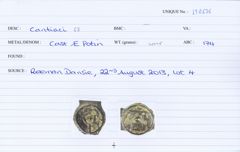 UNIQUE No:
DESC: Cantiaci BMC: VA:
METAL/DENOM: Cast Æ Potin WT (grams): ABC: 174
FOUND:
SOURCE: Roseman Danie, 22nd August 2013, lot 4